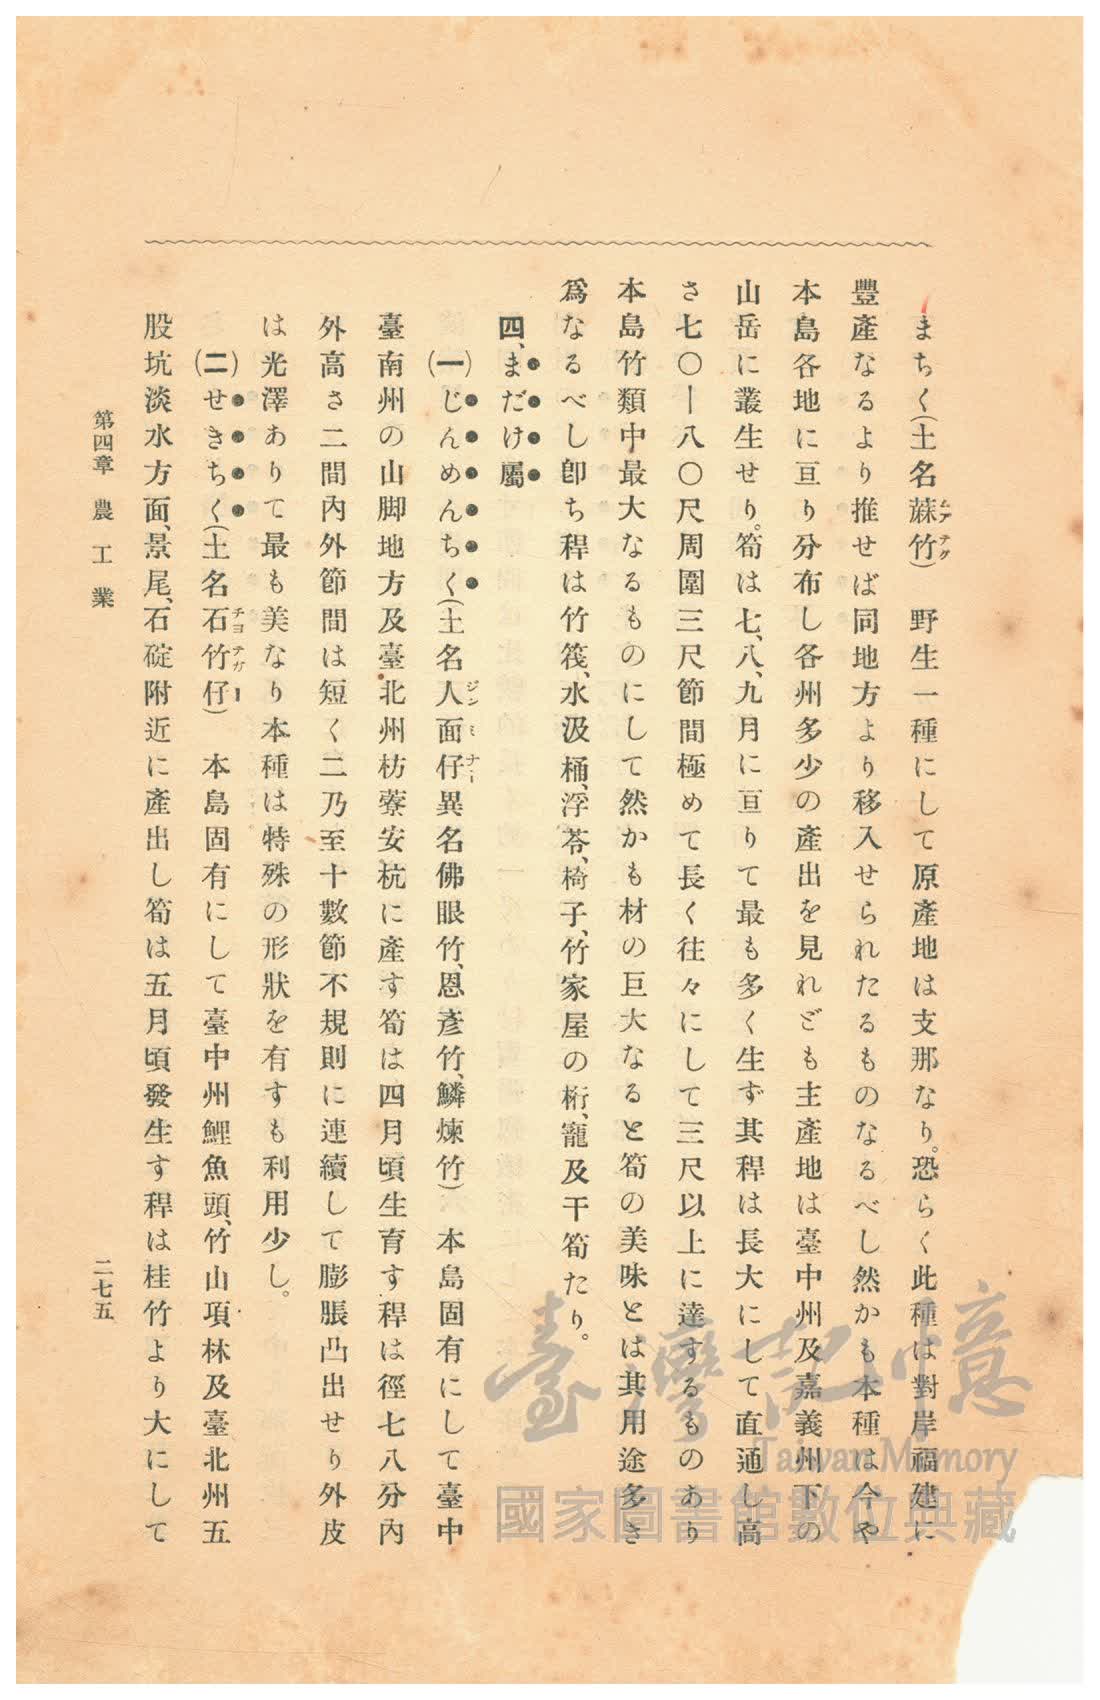 まちく(土名蔴竹)　野生一種にして原產地は支那なり。恐らく此種は對岸福建に
ムア テグ
豐產なるより推せば同地方より移入せられたるものなるべし然かも本種は今や
本島各地に亘り分布し各州多少の產出を見れども主產地は臺中州及嘉義州下の
山岳に叢生せり。筍は七、八、九月に亘りて最も多く生ず其稈は長大にして直通し高
さ七〇—八〇尺周圍三尺節間極めて長く往々にして三尺以上に達するものあり
本島竹類中最大なるものにして然かも材の巨大なると筍の美味とは其用途多き
爲なるべし卽ち稈は竹筏、水汲桶、浮荅、椅子、竹家屋の桁、寵及干筍たり。
四、まだけ屬
(一)じんめんちく(土名人面仔異名佛眼竹、恩彥竹、鱗煉竹)　本島固有にして臺中
ジン ミ ナー
臺南州の山脚地方及臺北州枋藔安杭に產す筍は四月頃生育す稈は徑七八分內
外高さ二間內外節間は短く二乃至十數節不規則に連續して膨脹凸出せり外皮
は光澤ありて最も美なり本種は特殊の形狀を有すも利用少し。
(二)せきちく(土名石竹仔)　本島固有にして臺中州鯉魚頭、竹山項林及臺北州五
チヨ テガ ー
股坑淡水方面、景尾、石碇附近に產出し筍は五月頃發生す稈は桂竹より大にして
第四章　農工業
二七五
臺灣記憶
Taiwan Memory
國家圖書館數位典藏